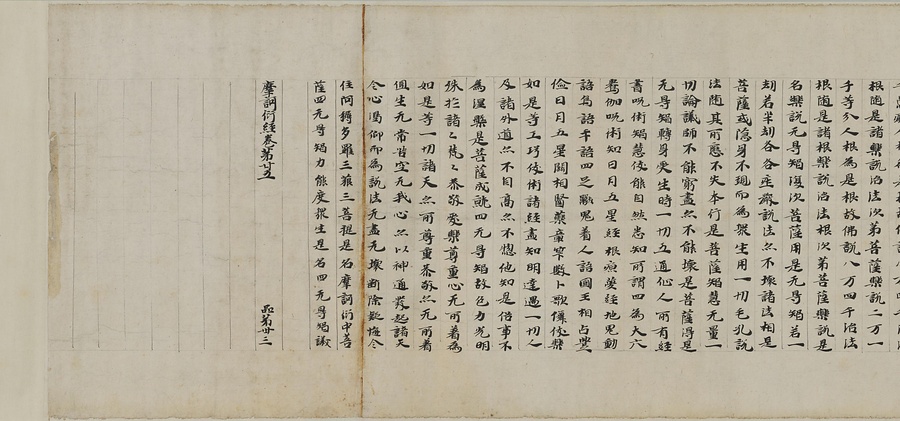 根随是諸樂説治法次第菩薩樂説二万一
千等分人根為是根故佛説八万四千治法
根随是諸根樂説治法根次第菩薩樂説是
名樂説无㝵智復次菩薩用是无㝵智若一
劫若半劫各各庄嚴説法亦不壊諸法相是
菩薩或隱身不現而為衆生用一切毛孔説
法随其所應不失本行是菩薩智慧无量一
切論議師不能窮盡亦不能壊是菩薩得是
无㝵智轉身受生時一切五通仙人所有經
書呪術智慧伎能自然悉知所謂四韋大六
鴦伽呪術知日月五星經夢經地鬼動
語鳥語四足獸鬼著人語國王相占豐
儉日月五星鬪相醫藥章筭數卜歌儛伎樂
如是等工巧伎術諸經盡知明達過一切人
及諸外道亦不自高亦不惱他知是俗事不
為涅槃是菩薩成就四无㝵智故色力光明
殊於諸々梵々恭敬愛樂尊重心无所著為
如是等一切諸天亦所尊重恭敬亦无所著
但生无常苦空无我心亦以神通發起諸天
令心渴仰而為説法无盡无壊断除疑悔令
住阿耨多羅三藐三菩提是名摩訶衍中菩
薩四无㝵智力能度衆生是名四无㝵智議
摩訶衍經卷第廿五 品第卅三